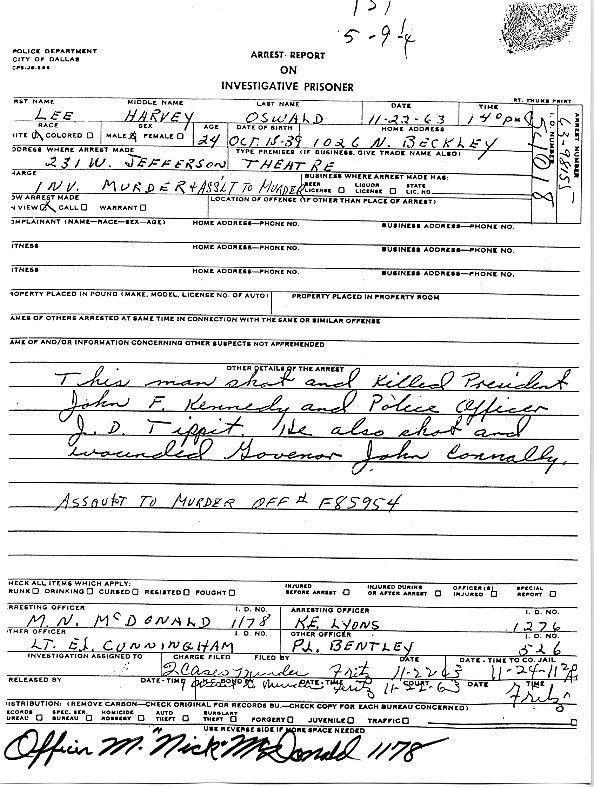 151
5-9¼
POLICE DEPARTMENT
CITY OF DALLAS
ARREST REPORT
ON
INVESTIGATIVE PRISONER
RST NAME MIDDLE NAME LAST NAME DATE TIME RT. THUMB PRINT
LEE HARVEY OSWALD 11-22-63 1 40 PM
RACE SEX AGE DATE OF BIRTH HOME ADDRESS
ITE COLORED MALE FEMALE 24 OCT 18-39 1026 N. BECKLEY
I D NUMBER 54018
ARREST NUMBER 63-98155
DDRESS WHERE ARREST MADE TYPE PREMISES (IF BUSINESS, GIVE TRADE NAME ALSO)
231 W. JEFFERSON THEATRE
HARGE BUSINESS WHERE ARREST MADE HAS:
INV. MURDER + ASSLT TO MURDER BEER LICENSE LIQUOR LICENSE STATE LIC. NO.
OW ARREST MADE LOCATION OF OFFENSE (IF OTHER THAN PLACE OF ARREST)
N VIEW CALL WARRANT
OMPLAINANT (NAME—RACE—SEX—AGE) HOME ADDRESS—PHONE NO. BUSINESS ADDRESS—PHONE NO.
ITNESS HOME ADDRESS—PHONE NO. BUSINESS ADDRESS—PHONE NO.
ITNESS HOME ADDRESS—PHONE NO. BUSINESS ADDRESS—PHONE NO.
ROPERTY PLACED IN POUND (MAKE, MODEL, LICENSE NO. OF AUTO) PROPERTY PLACED IN PROPERTY ROOM
AMES OF OTHERS ARRESTED AT SAME TIME IN CONNECTION WITH THE SAME OR SIMILAR OFFENSE
AME OF AND/OR INFORMATION CONCERNING OTHER SUSPECTS NOT APPREHENDED
OTHER DETAILS OF THE ARREST
This man shot and killed President
John F. Kennedy and Police Officer
J. D. Tippit. He also shot and
wounded Govenor John Connally.
ASSAULT TO MURDER OFF # F85954
HECK ALL ITEMS WHICH APPLY:
RUNK DRINKING CURSED RESISTED FOUGHT INJURED BEFORE ARREST INJURED DURING OR AFTER ARREST OFFICER(S) INJURED SPECIAL REPORT
RRESTING OFFICER I. D. NO. ARRESTING OFFICER I. D. NO.
M. N. McDONALD 1178 K.E. LYONS 1276
THER OFFICER I. D. NO. OTHER OFFICER I. D. NO.
LT. E.L. CUNNINGHAM P.L. BENTLEY 526
INVESTIGATION ASSIGNED TO CHARGE FILED FILED BY DATE DATE - TIME TO CO. JAIL
2 Cases Murder Fritz 11-22-63 11-24-1120
RELEASED BY DATE-TIME DATE-TIME COURT DATE TIME
Murder Fritz 11-22-63 Fritz
ISTRIBUTION: (REMOVE CARBON—CHECK ORIGINAL FOR RECORDS BU.—CHECK COPY FOR EACH BUREAU CONCERNED)
ECORDS UREAU SPEC. SER. BUREAU HOMICIDE ROBBERY AUTO THEFT BURGLARY THEFT FORGERY JUVENILE TRAFFIC
USE REVERSE SIDE IF MORE SPACE NEEDED
Officer M. "Nick" McDonald 1178